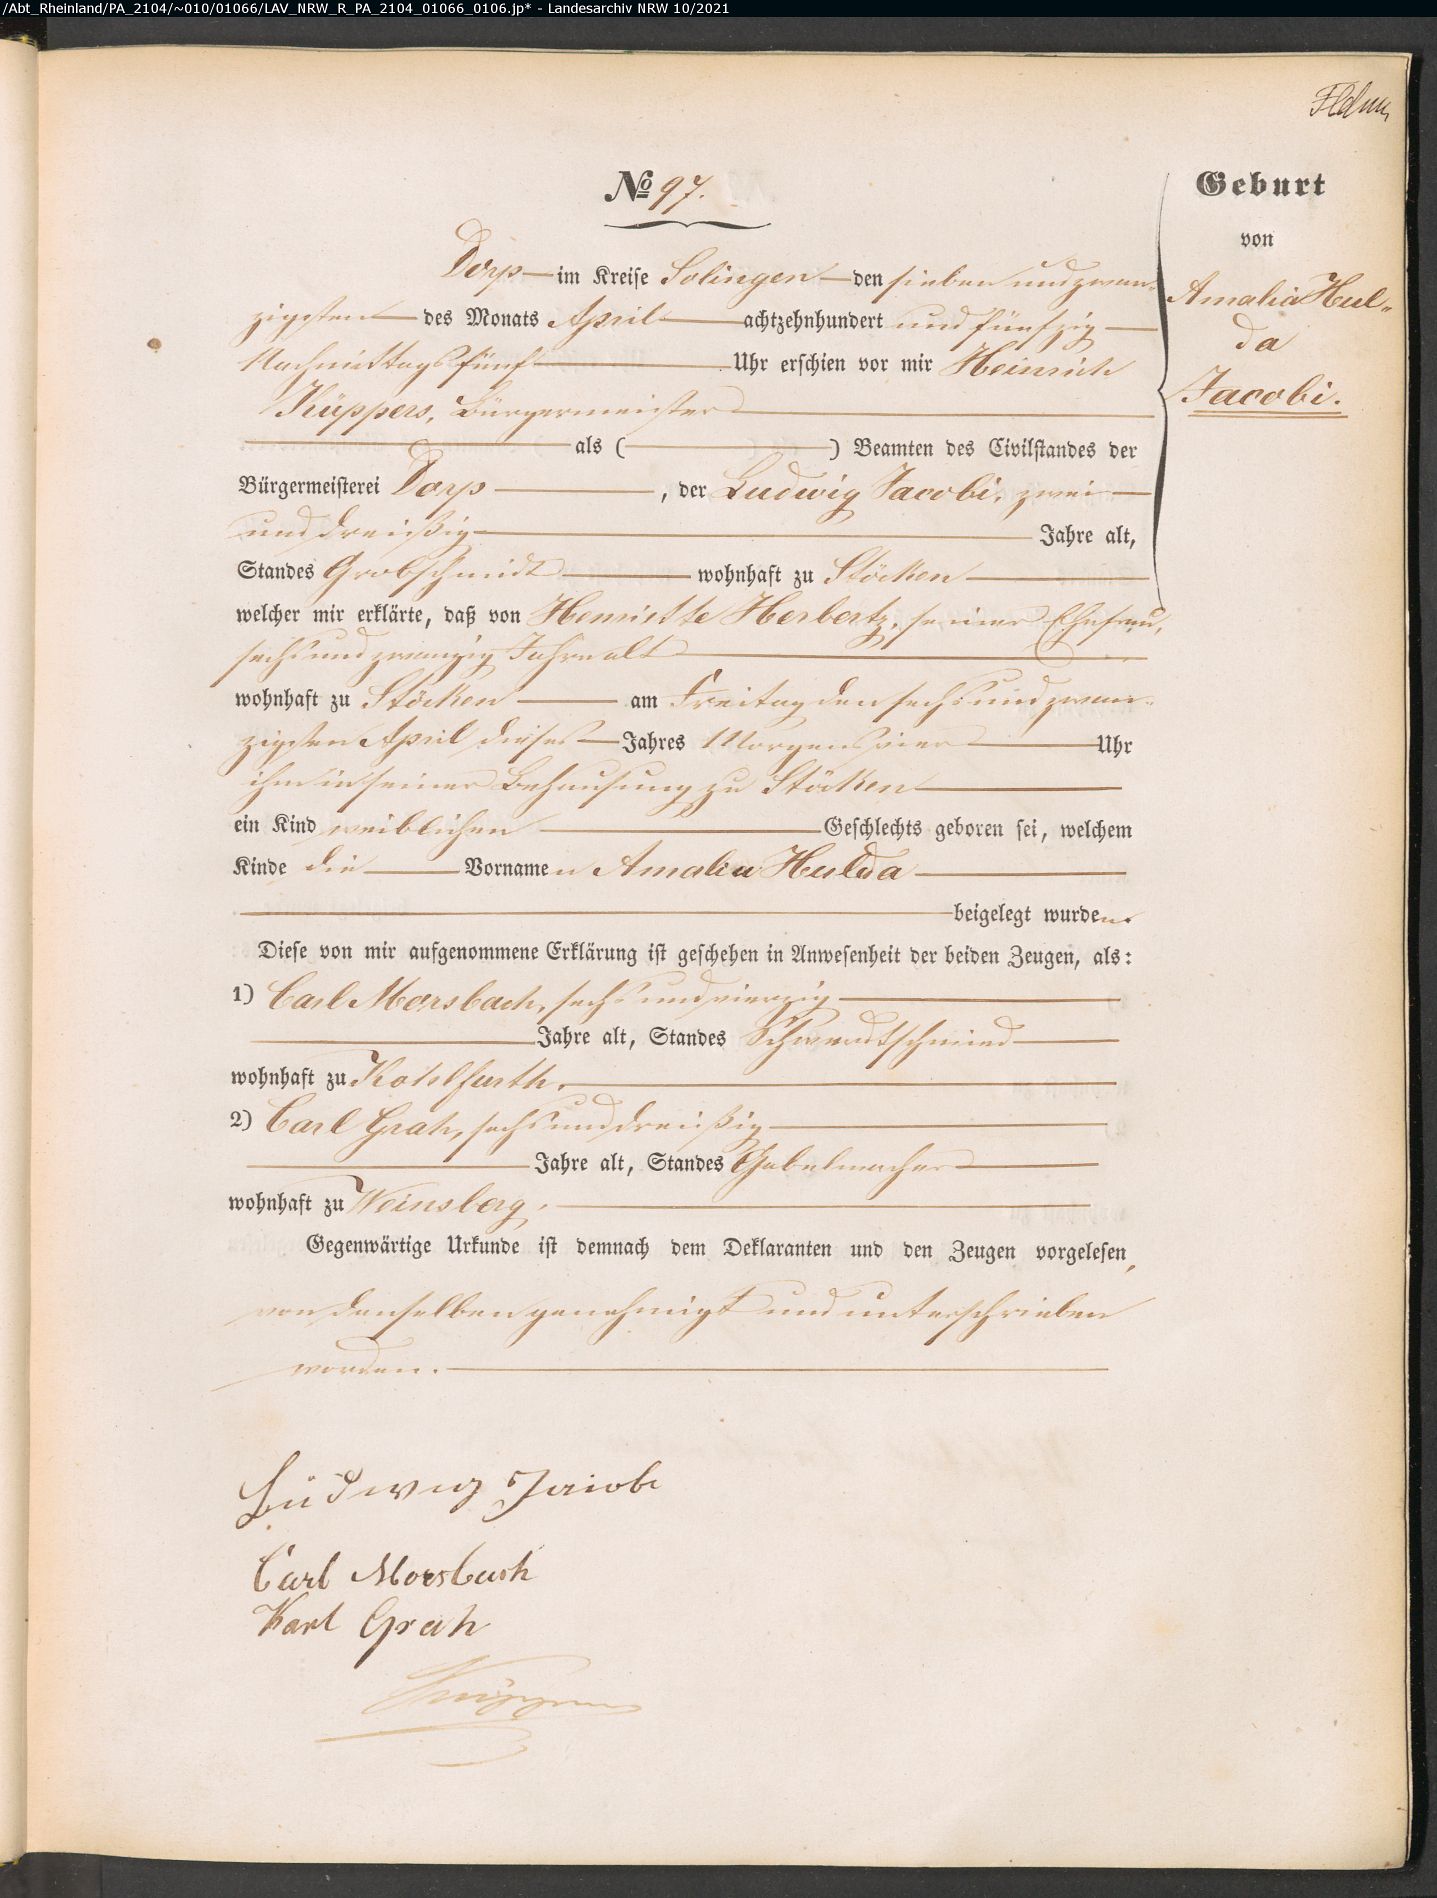 /Abt_Rheinland/PA_2104/~010/01066/LAV_NRW_R_PA_2104_01066_0106.jp* - Landesarchiv NRW 10/2021
№ 97.
Dorp im Kreise Solingen den sieben und zwan-
zigsten des Monats April achtzehnhundert und fünfzig
Nachmittags fünf Uhr erschien vor mir Heinrich
Küppers, Bürgermeister
als ( ) Beamten des Civilstandes der
Bürgermeisterei Dorp , der Ludwig Jacobi, zwei
und dreißig Jahre alt,
Standes Grobschmidt wohnhaft zu Stöcken
welcher mir erklärte, daß von Henriette Herbertz, seiner Ehefrau,
sechs und zwanzig Jahre alt
wohnhaft zu Stöcken am Freitag den sechs und zwan-
zigsten April dieses Jahres Morgens vier Uhr
ihm in seiner Behausung zu Stöcken
ein Kind weiblichen Geschlechts geboren sei, welchem
Kinde die Vornamen Amalia Hulda
beigelegt wurden.
Diese von mir aufgenommene Erklärung ist geschehen in Anwesenheit der beiden Zeugen, als:
1) Carl Morsbach, sechs und vierzig
Jahre alt, Standes Schwerdtschmied
wohnhaft zu
2) Carl Grah, sechs und dreißig
Jahre alt, Standes Gabelmacher
wohnhaft zu Weinsberg.
Gegenwärtige Urkunde ist demnach dem Deklaranten und den Zeugen vorgelesen,
von denselben genehmigt und unterschrieben
worden.
Ludwig Jacobi
Carl Morsbach
Karl Grah
Küppers
Geburt
von
Amalia Hul-
da
Jacobi.